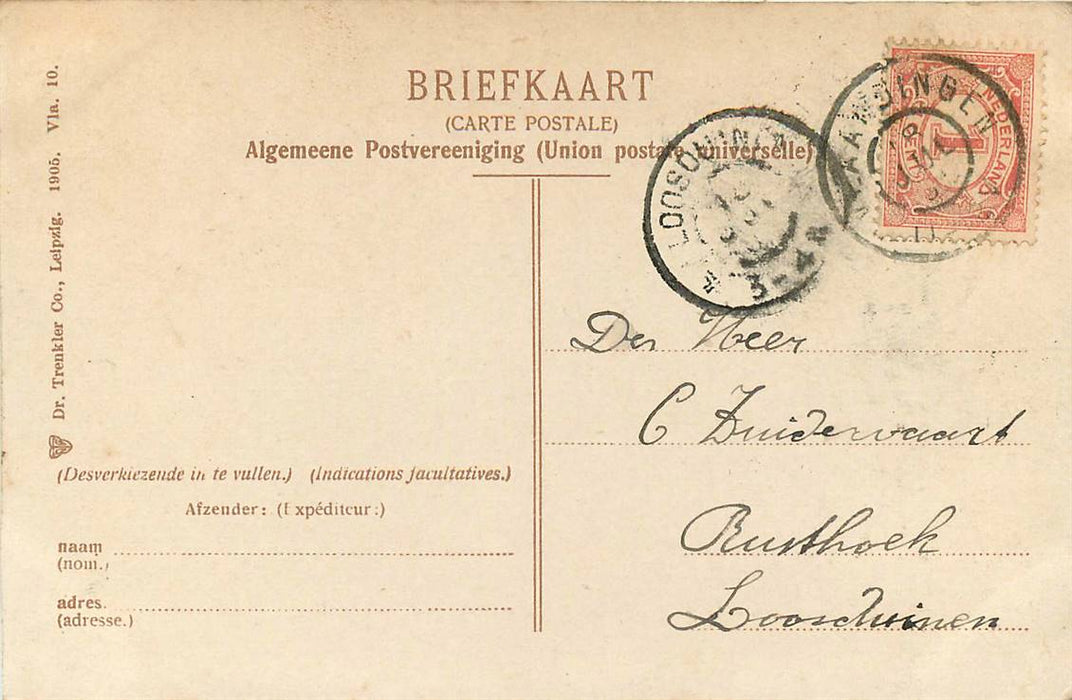 BRIEFKAART
(CARTE POSTALE)
Algemeene Postvereeniging (Union postale universelle)
Dr. Trenkler Co., Leipzig. 1905. Vla. 10.
NEDERLAND
1
LOOSDUINEN
3-4N
Der Heer
C Zuidervaart
Rusthoek
Loosduinen
(Desverkiezende in te vullen.) (Indications facultatives.)
Afzender: (Expéditeur:)
naam
(nom.)
adres.
(adresse.)